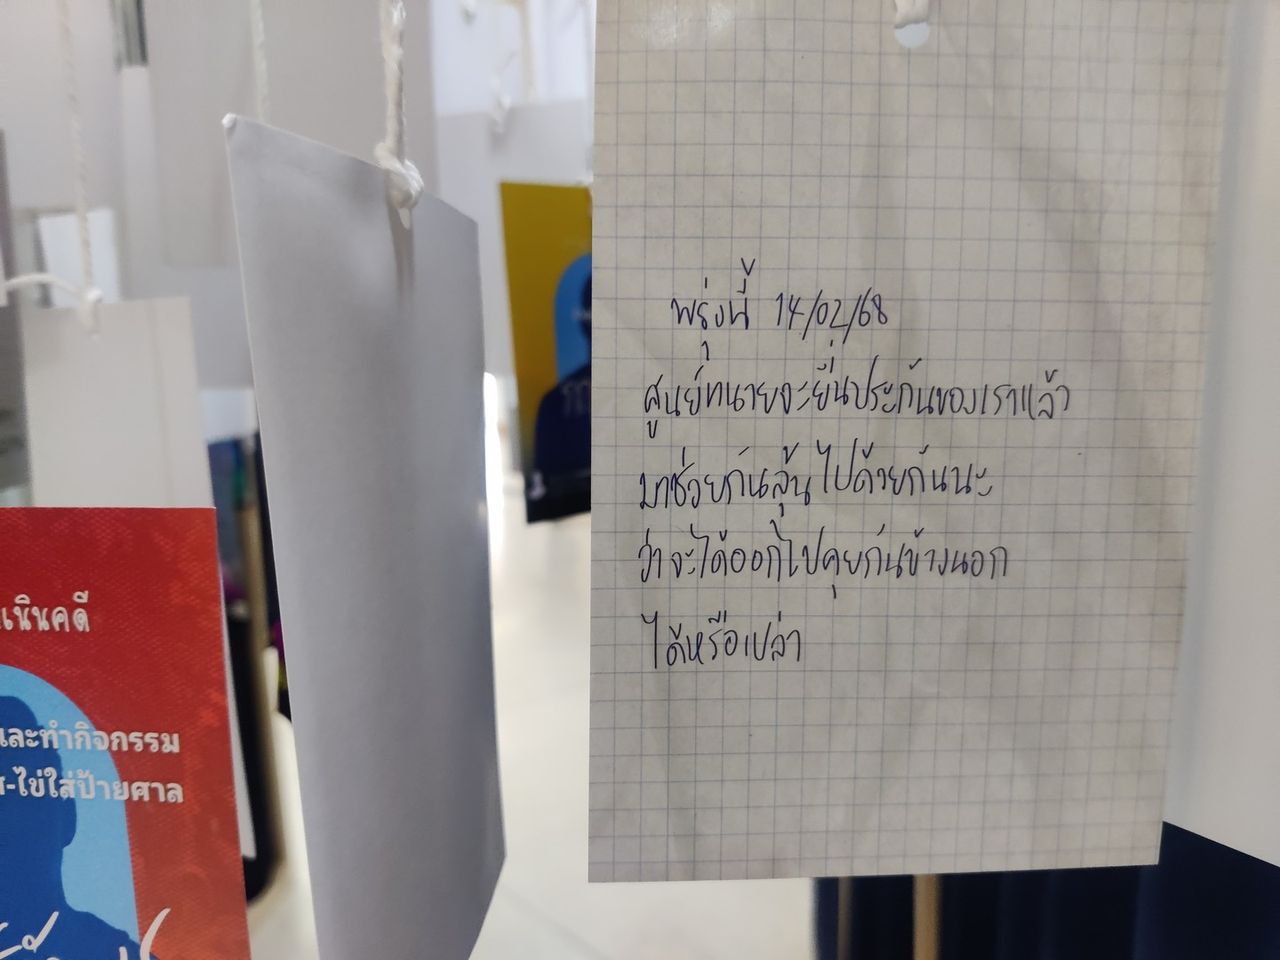 พรุ่งนี้ 14/02/68
ศูนย์ทนายจะยื่นประกันของเราแล้ว
มาช่วยกันลุ้นไปด้วยกันนะ
ว่าจะได้ออกไปคุยกันข้างนอก
ได้หรือเปล่า
เนินคดี
และทำกิจกรรม
-ไข่ใส่ป้ายศาล